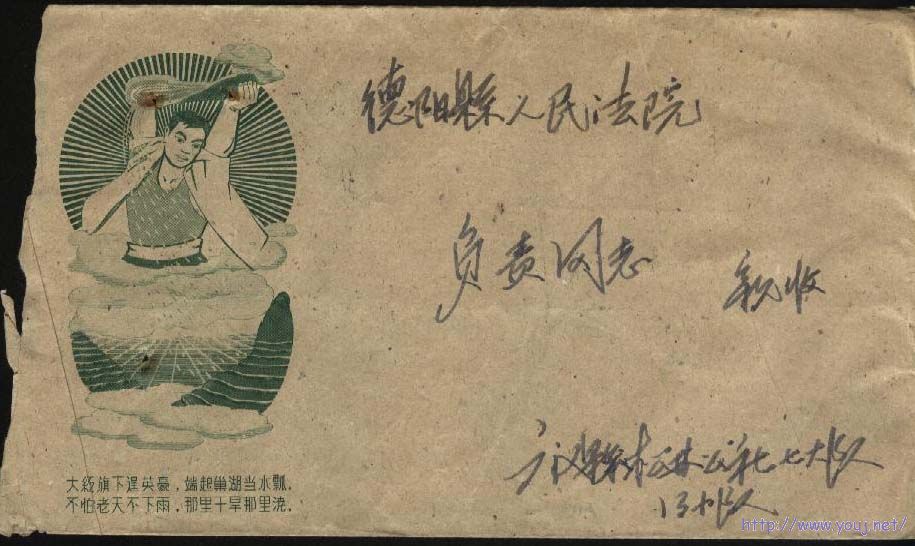 德阳縣人民法院
负责同志 親收
广汉縣松林公社七大队
大红旗下逞英豪，端起巢湖当水瓢.
不怕老天不下雨，那里干旱那里澆.
http://www.youj.net/